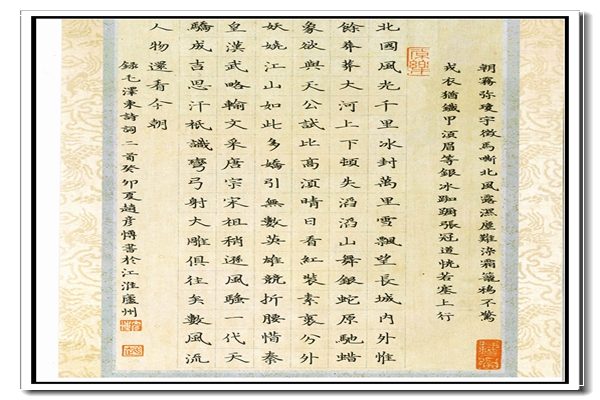 朝霧弥瓊宇徵馬嘶北風露濕塵難染霜籠鴉不驚
戎衣猶鐵甲湏眉等銀冰踟躕張冠道恍若塞上行
北國風光千里冰封萬里雪飄望長城內外惟
餘莽莽大河上下頓失滔滔山舞銀蛇原馳蜡
象欲與天公試比高湏晴日看紅裝素裹分外
妖嬈江山如此多嬌引無數英雄競折腰惜秦
皇漢武略輸文采唐宗宋祖稍遜風騷一代天
驕成吉思汗衹識彎弓射大雕俱往矣數風流
人物還看今朝
錄毛澤東詩詞二首癸卯夏趙彦博書於江淮廬州